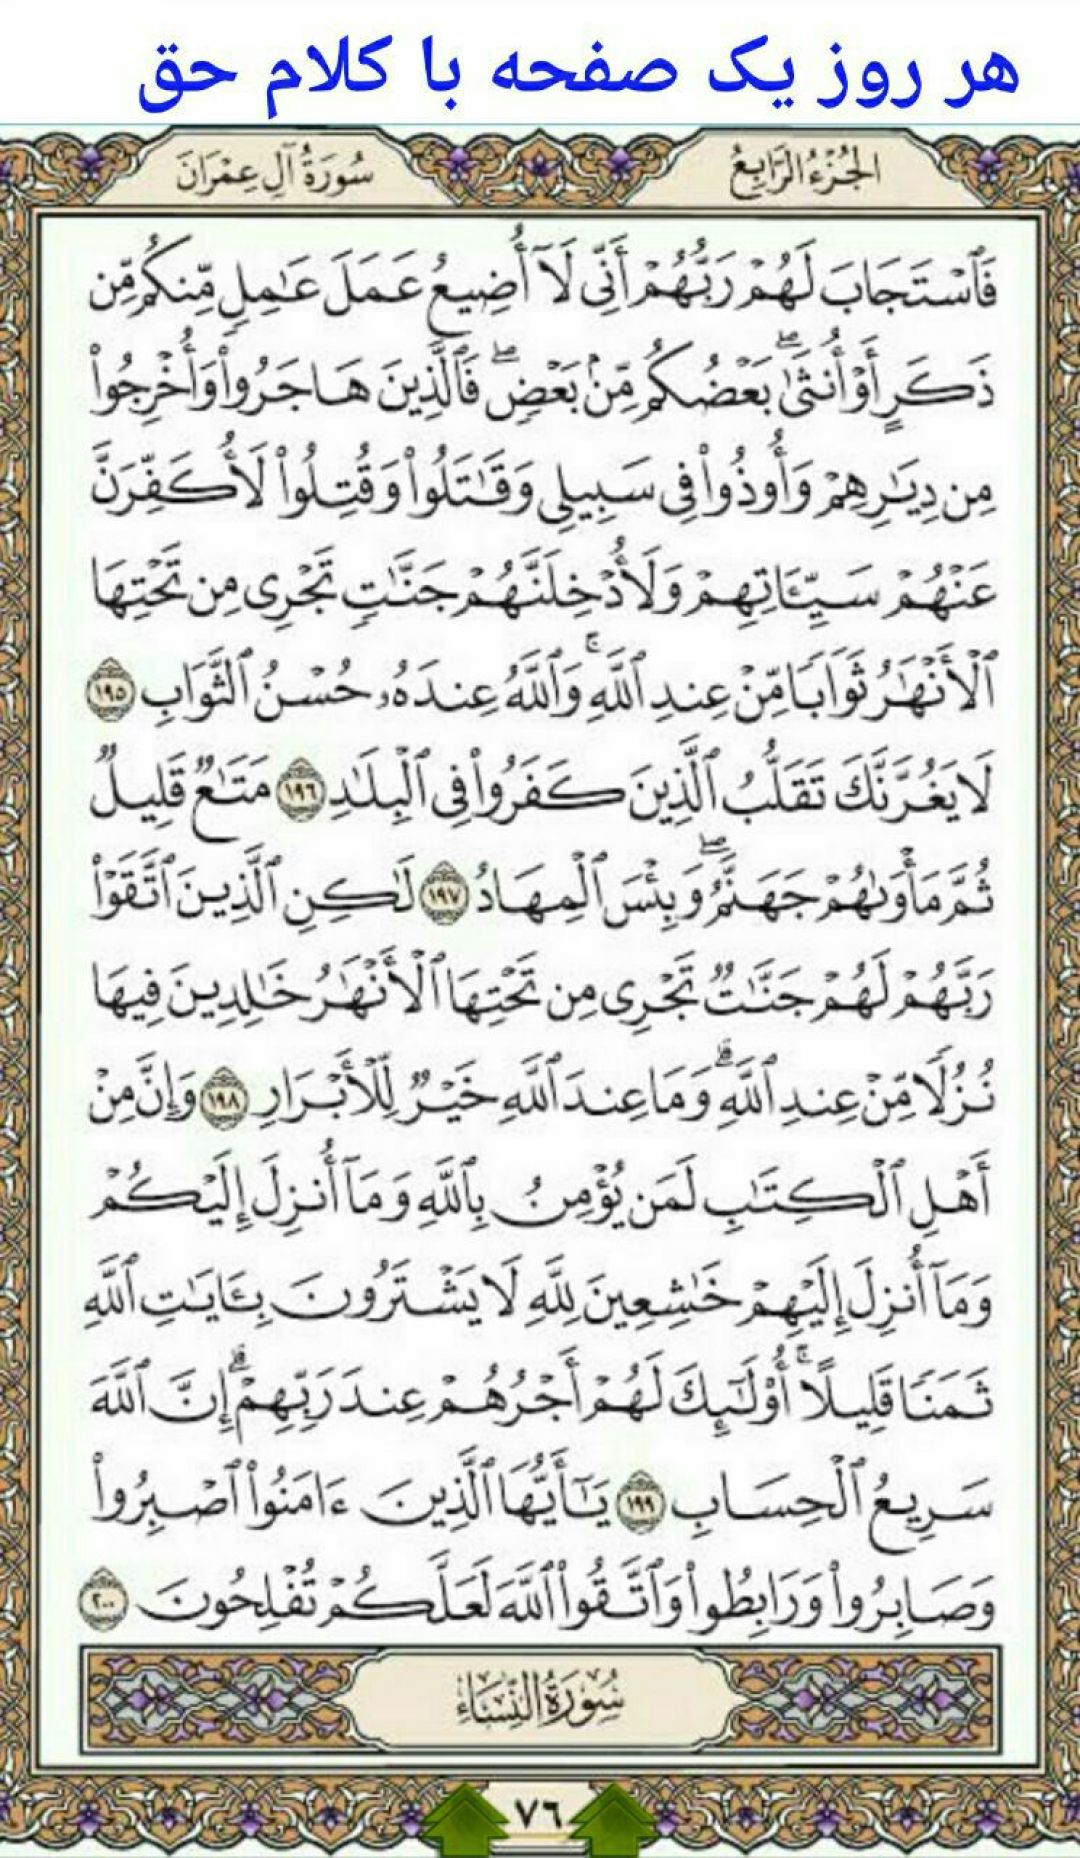 هر روز یک صفحه با کلام حق
الجُزْءُ الرَّابِعُ
سُورَةُ آلِ عِمْرَانَ
فَٱسْتَجَابَ لَهُمْ رَبُّهُمْ أَنِّى لَآ أُضِيعُ عَمَلَ عَٰمِلٍ مِّنكُم مِّن
ذَكَرٍ أَوْ أُنثَىٰ ۖ بَعْضُكُم مِّنۢ بَعْضٍ ۖ فَٱلَّذِينَ هَاجَرُوا۟ وَأُخْرِجُوا۟
مِن دِيَٰرِهِمْ وَأُوذُوا۟ فِى سَبِيلِى وَقَٰتَلُوا۟ وَقُتِلُوا۟ لَأُكَفِّرَنَّ
عَنْهُمْ سَيِّـَٔاتِهِمْ وَلَأُدْخِلَنَّهُمْ جَنَّٰتٍ تَجْرِى مِن تَحْتِهَا
ٱلْأَنْهَٰرُ ثَوَابًا مِّنْ عِندِ ٱللَّهِ ۚ وَٱللَّهُ عِندَهُۥ حُسْنُ ٱلثَّوَابِ ١٩٥
لَا يَغُرَّنَّكَ تَقَلُّبُ ٱلَّذِينَ كَفَرُوا۟ فِى ٱلْبِلَٰدِ ١٩٦ مَتَٰعٌ قَلِيلٌ
ثُمَّ مَأْوَىٰهُمْ جَهَنَّمُ ۖ وَبِئْسَ ٱلْمِهَادُ ١٩٧ لَٰكِنِ ٱلَّذِينَ ٱتَّقَوْا۟
رَبَّهُمْ لَهُمْ جَنَّٰتٌ تَجْرِى مِن تَحْتِهَا ٱلْأَنْهَٰرُ خَٰلِدِينَ فِيهَا
نُزُلًا مِّنْ عِندِ ٱللَّهِ ۗ وَمَا عِندَ ٱللَّهِ خَيْرٌ لِّلْأَبْرَارِ ١٩٨ وَإِنَّ مِنْ
أَهْلِ ٱلْكِتَٰبِ لَمَن يُؤْمِنُ بِٱللَّهِ وَمَآ أُنزِلَ إِلَيْكُمْ
وَمَآ أُنزِلَ إِلَيْهِمْ خَٰشِعِينَ لِلَّهِ لَا يَشْتَرُونَ بِـَٔايَٰتِ ٱللَّهِ
ثَمَنًا قَلِيلًا ۗ أُو۟لَٰٓئِكَ لَهُمْ أَجْرُهُمْ عِندَ رَبِّهِمْ ۗ إِنَّ ٱللَّهَ
سَرِيعُ ٱلْحِسَابِ ١٩٩ يَٰٓأَيُّهَا ٱلَّذِينَ ءَامَنُوا۟ ٱصْبِرُوا۟
وَصَابِرُوا۟ وَرَابِطُوا۟ وَٱتَّقُوا۟ ٱللَّهَ لَعَلَّكُمْ تُفْلِحُونَ ٢٠٠
سُورَةُ النِّسَاءِ
٧٦